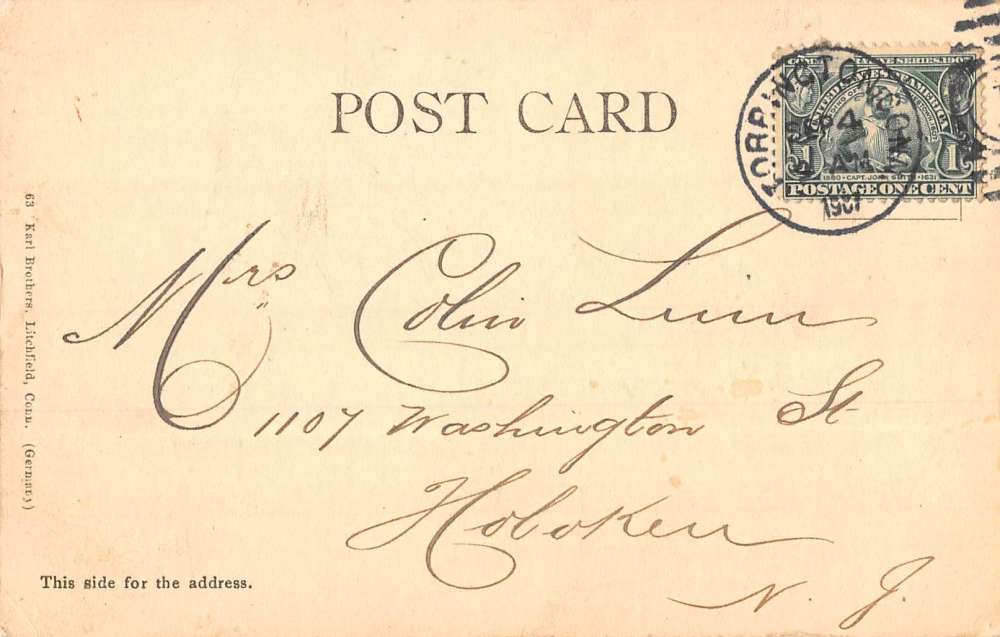 POST CARD
TORRINGTON CONN.
4
AM
1907
UNITED STATES OF AMERICA
1580 · CAPT. JOHN SMITH · 1631
1 1
POSTAGE ONE CENT
Mrs Colin Linn
1107 Washington St
Hoboken
N. J.
63 Karl Brothers, Litchfield, Conn. (Germany)
This side for the address.